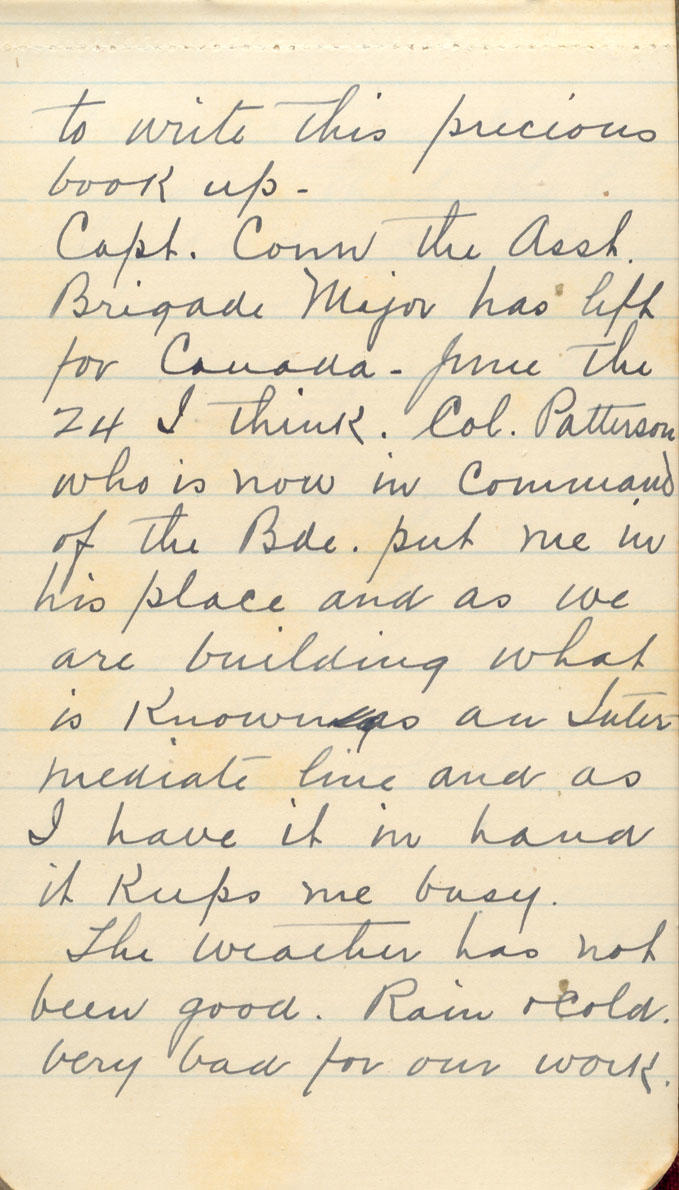 to write this precious
book up-
Capt. Conn the Asst.
Brigade Major has left
for Canada - June the
24 I think. Col. Patterson
who is now in Command
of the Bde. put me in
his place and as we
are building what
is Known as an Inter-
mediate line and as
I have it in hand
it Keeps me busy.
The weather has not
been good. Rain & Cold.
Very bad for our work.